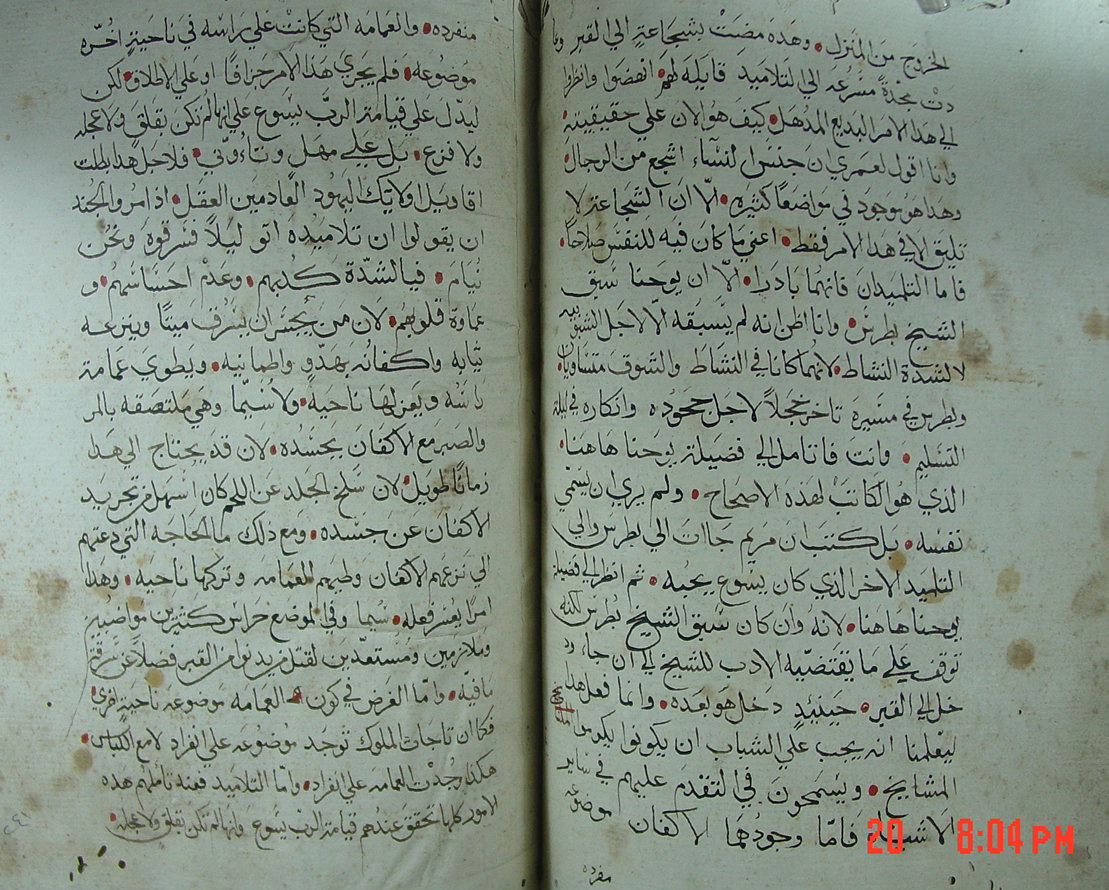 الخروج من المنزل • وهذه مضت بشجاعةٍ الي القبر وما
دت مجدةً مسرعه الي التلاميد قايله لهم انهضوا وانظروا
الي هدا الامر البديع المدهل • كيف هو الان علي حقيقيته
وانا اقول لعمري ان جنس النساء اشجع من الرجال •
وهدا هو موجود في مواضعاً كثيره • الّا ان الشجاعة لا
تليق الا في هدا الامر فقط • اعني ما كان فيه للنفس صلاحاً •
فاما التلميدان فانهما بادرا • الّا ان يوحنا سبق
الشيخ بطرس • وانا اظن انه لم يسبقه الّا لاجل الشبوبيه
لا لشدة النشاط • لانهما كانا في النشاط والشوق متساويان •
وبطرس في مسيره تاخر خجلاً لاجل جحوده وانكاره في ليلة
التسليم • وانت فاتامل الي فضيلة يوحنا هاهنا •
الدي هو الكاتب لهده الاصحاح • ولم يري ان يسمي
نفسه • بل كتب ان مريم جاات الي بطرس والي
التلميد الاخر الدي كان يسوع يحبه • ثم انظر الي فضيلة
يوحنا هاهنا • لانه وان كان سبق الشيخ بطرس لكنه
توقف علي ما يقتضيه الادب للشيخ الي ان جاء ود
خل الي القبر • حينيدٍ دخل هو بعده • وانما فعل هدا
ليعلمنا انه يجب علي الشباب ان يكونوا يكرموا
المشايخ • ويسمحون في التقدم عليهم في ساير
الاشيا • فامّا وجودهما الاكفان موضوعه
مفرده
منفرده • والعمامه التي كانت علي راسه في ناحيةٍ اخره
موضوعه • فلم يجري هدا الامر جزافاً او علي الاطلاق • لكن
ليدل علي قيامة الربّ يسوع علي انها لم تكن بقلقٍ ولا عجله
ولا فزع • بل علي مهل وتاءوني • فلاجل هدا بطلت
اقاويل اولايك اليهود العادمين العقل • اد امروا الجند
ان يقولوا ان تلاميده اتو ليلاً وسرقوه ونحن
نيام • فيا لشدّة كدبهم • وعدم احساسهم • و
عماوة قلوبهم • لان من يجسر ان يسرق ميتاً وينزعه
ثيابه واكفانه بهدوٍ واطمانيه • ويطوي عمامة
راسه ويعزلها ناحيه • ولا سيّما وهي ملتصقه بالمر
والصبر مع الاكفان بجسده • لان قد يحتاج الي هدا
زماناً طويل • لان سلخ الجلد عن اللحم كان اسهل من تجريد
الاكفان عن جسده • ومع دلك ما الحاجه التي دعتهم
الي نزعهم الاكفان وطيهم العمامه وتركها ناحيه • وهدا
امراً يعسر فعله • سيما وفي الموضع حراس كتيرين مواضبين
وملازمين ومستعدّين لقتل من يدنوا من القبر فضلاً عن سرقة
ما فيه • وامّا الغرض في كون العمامه موضوعه ناحيةٍ اخري •
فكما ان تاجات الملوك توجد موضوعه علي انفراد لا مع اللباس •
هكدا وجدت العمامه علي انفراد • وامّا التلاميد فعند تاملهم هده
الامور كلها تحقق عندهم قيامة الرب يسوع وانها لم تكن بقلق ولا عجله •
20 8:04 PM